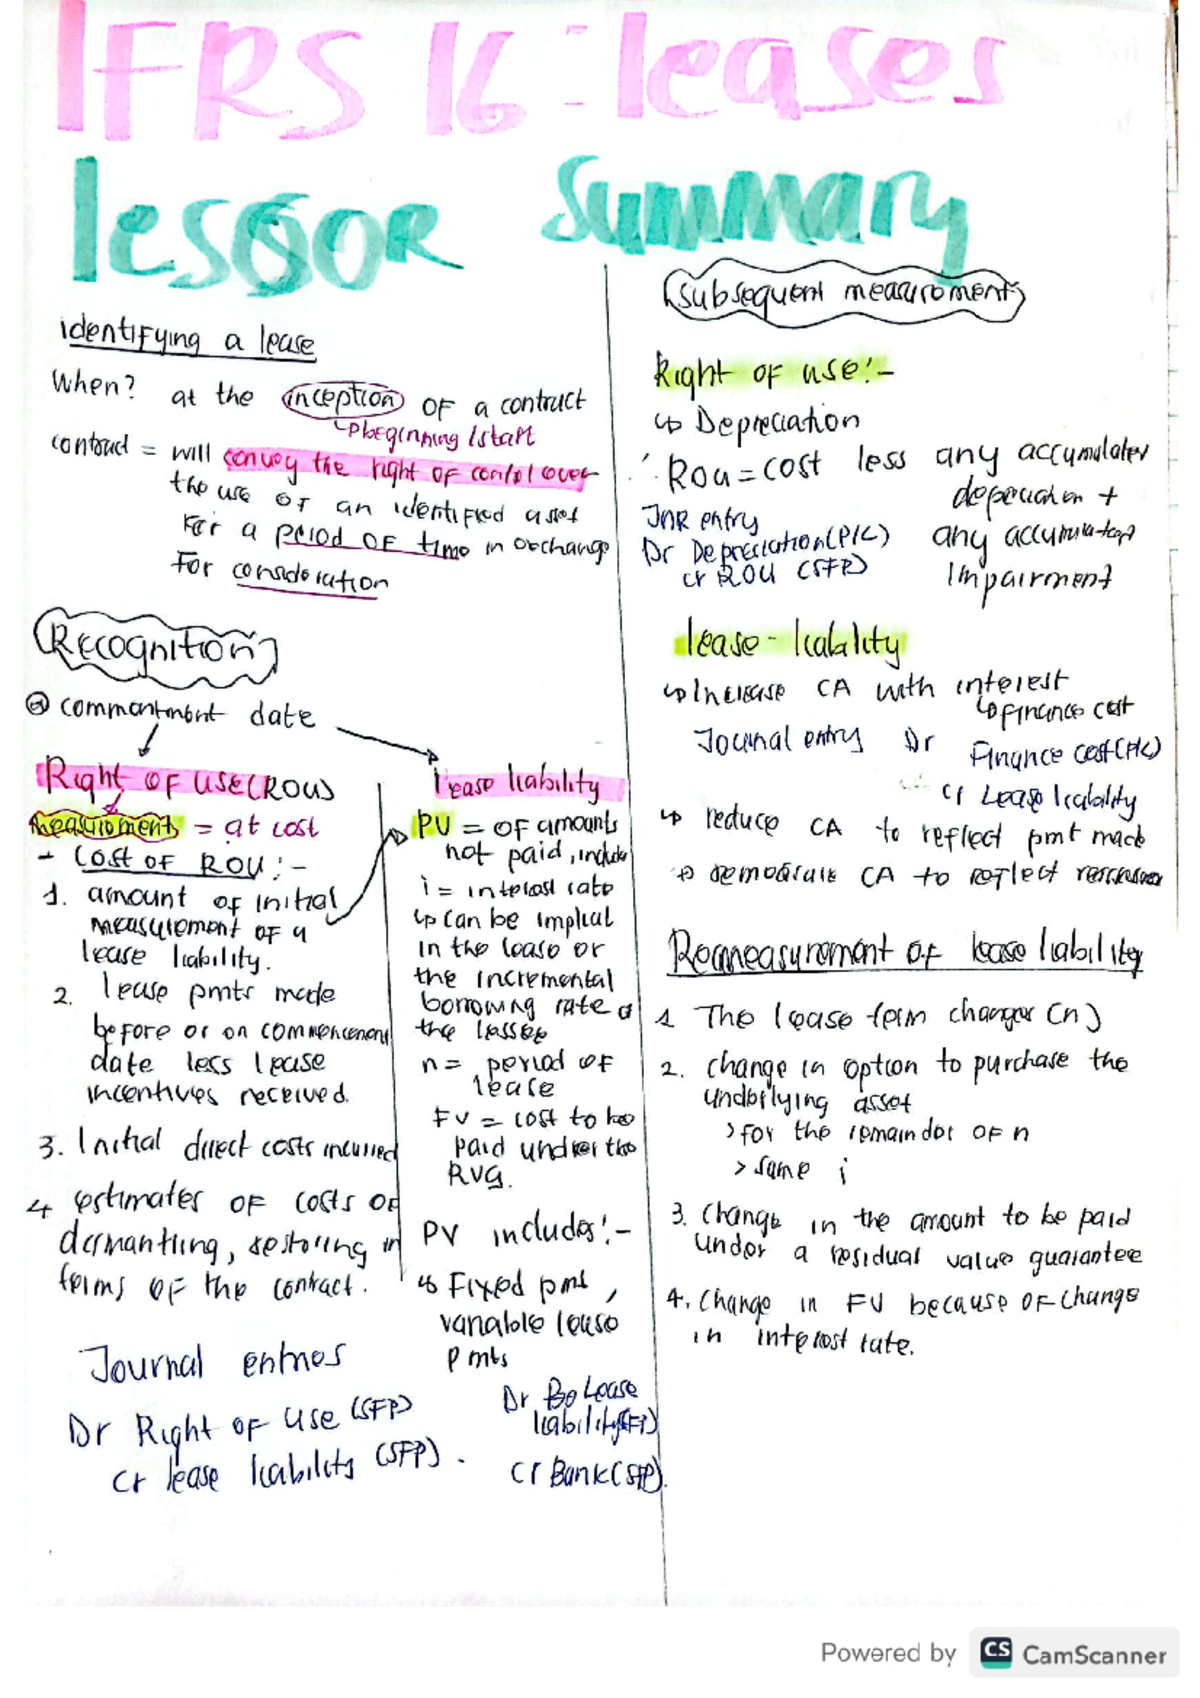 IFRS 16 : leases
lessor summary
identifying a lease
When? at the inception of a contract
↳beginning /start
contract = will convey the right of control over
the use of an identified asset
For a period of time in exchange
For consideration
Recognition
@ commencement date
Right of use(ROU)
measurement = at cost
- Cost of ROU :-
1. amount of initial
measurement of a
lease liability.
2. lease pmts made
before or on commencement
date less lease
incentives received.
3. Initial direct costs incurred
4 estimates of costs of
dismantling, restoring in
terms of the contract.
Journal entries
Dr Right of use (SFP)
Cr lease liability (SFP).
lease liability
PV = of amounts
not paid, include
i = interest rate
↳ can be implicit
in the lease or
the incremental
borrowing rate of
the lessee
n = period of
lease
FV = cost to be
paid under the
RVG.
PV includes:-
↳ Fixed pmt,
variable lease
pmts
Dr Lease
liability
Cr Bank(SFP).
Subsequent measurement
Right of use:-
↳ Depreciation
∴ ROU = cost less any accumulated
depreciation +
any accumulated
impairment
JNR entry
Dr Depreciation(P/L)
cr ROU (SFP)
lease-liability
↳ Increase CA with interest
↳ finance cost
Journal entry Dr Finance cost(P/L)
cr Lease liability
↳ reduce CA to reflect pmt made
↳ remeasure CA to reflect
Remeasurement of lease liability
1 The lease term changes (n)
2. change in option to purchase the
underlying asset
> for the remainder of n
> same i
3. Change in the amount to be paid
under a residual value guarantee
4. Change in FV because of change
in interest rate.
Powered by CS CamScanner